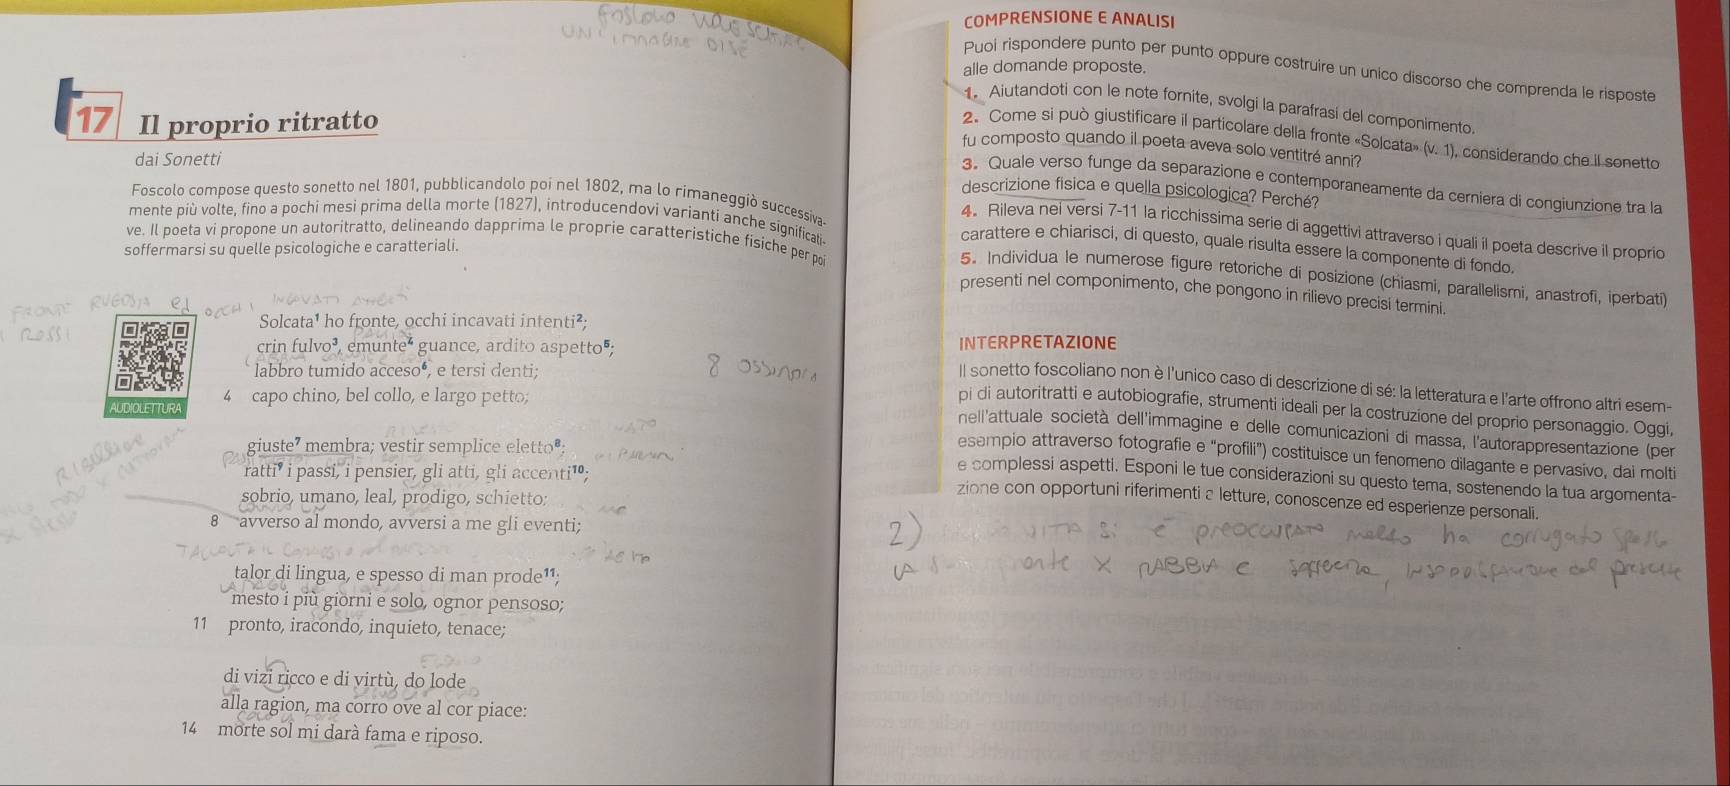 Foscolo
UN'IMMAGINE DI SÉ
17 Il proprio ritratto
dai Sonetti
Foscolo compose questo sonetto nel 1801, pubblicandolo poi nel 1802, ma lo rimaneggiò successiva-
mente più volte, fino a pochi mesi prima della morte (1827), introducendovi varianti anche significati-
ve. Il poeta vi propone un autoritratto, delineando dapprima le proprie caratteristiche fisiche per poi
soffermarsi su quelle psicologiche e caratteriali.
FRONTE RUGOSA ed OCCHI INCAVATI
ROSSI
AUDIOLETTURA
Solcata¹ ho fronte, occhi incavati intenti²;
crin fulvo³, emunte⁴ guance, ardito aspetto⁵;
labbro tumido acceso⁶, e tersi denti;
8 OSSIMORI
4 capo chino, bel collo, e largo petto;
giuste⁷ membra; vestir semplice eletto⁸;
ratti⁹ i passi, i pensier, gli atti, gli accenti¹⁰;
sobrio, umano, leal, prodigo, schietto;
8 avverso al mondo, avversi a me gli eventi;
talor di lingua, e spesso di man prode¹¹;
mesto i più giorni e solo, ognor pensoso;
11 pronto, iracondo, inquieto, tenace;
di vizi ricco e di virtù, do lode
alla ragion, ma corro ove al cor piace:
14 morte sol mi darà fama e riposo.
COMPRENSIONE E ANALISI
Puoi rispondere punto per punto oppure costruire un unico discorso che comprenda le risposte
alle domande proposte.
1. Aiutandoti con le note fornite, svolgi la parafrasi del componimento.
2. Come si può giustificare il particolare della fronte «Solcata» (v. 1), considerando che il sonetto
fu composto quando il poeta aveva solo ventitré anni?
3. Quale verso funge da separazione e contemporaneamente da cerniera di congiunzione tra la
descrizione fisica e quella psicologica? Perché?
4. Rileva nei versi 7-11 la ricchissima serie di aggettivi attraverso i quali il poeta descrive il proprio
carattere e chiarisci, di questo, quale risulta essere la componente di fondo.
5. Individua le numerose figure retoriche di posizione (chiasmi, parallelismi, anastrofi, iperbati)
presenti nel componimento, che pongono in rilievo precisi termini.
INTERPRETAZIONE
Il sonetto foscoliano non è l'unico caso di descrizione di sé: la letteratura e l'arte offrono altri esem-
pi di autoritratti e autobiografie, strumenti ideali per la costruzione del proprio personaggio. Oggi,
nell'attuale società dell'immagine e delle comunicazioni di massa, l'autorappresentazione (per
esempio attraverso fotografie e "profili") costituisce un fenomeno dilagante e pervasivo, dai molti
e complessi aspetti. Esponi le tue considerazioni su questo tema, sostenendo la tua argomenta-
zione con opportuni riferimenti a letture, conoscenze ed esperienze personali.
2) VITA si è preoccupato molto ha corrugato spesso
LA fronte X RABBIA e sofferenza, insoddisfazione del presente